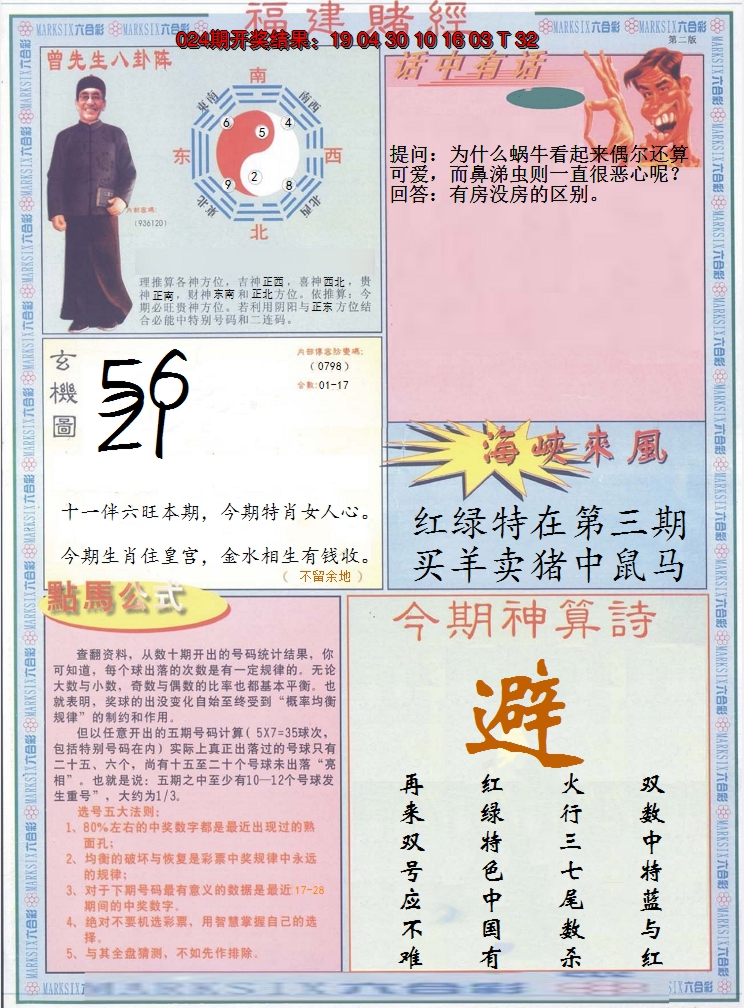 福建賭經
024期开奖结果：19 04 30 10 16 03 T 32
MARKSIX六合彩 MARKSIX六合彩 MARKSIX六合彩 MARKSIX六合彩
第二版
曾先生八卦阵
南
東南
西南
6
5
4
东
西
9
2
8
東北
西北
北
内部密碼：
（936120）
理推算各神方位，吉神正西，喜神西北，贵
神正南，财神东南和正北方位。依推算：今
期必旺贵神方位。若利用阴阳与正东方位结
合必能中特别号码和二连码。
话中有话
提问：为什么蜗牛看起来偶尔还算
可爱，而鼻涕虫则一直很恶心呢？
回答：有房没房的区别。
玄機圖
56
21
内部傳密防變碼：
（0798）
合數:01-17
十一伴六旺本期，今期特肖女人心。
今期生肖住皇宫，金水相生有钱收。
（ 不留余地 ）
海峽來風
红绿特在第三期
买羊卖猪中鼠马
點馬公式
查翻资料，从数十期开出的号码统计结果，你
可知道，每个球出落的次数是有一定规律的。无论
大数与小数，奇数与偶数的比率也都基本平衡。也
就表明，奖球的出没变化自始至终受到“概率均衡
规律”的制约和作用。
但以任意开出的五期号码计算（5X7=35球次，
包括特别号码在内）实际上真正出落过的号球只有
二十五、六个，尚有十五至二十个号球未出落“亮
相”。也就是说：五期之中至少有10—12个号球发
生重号”，大约为1/3。
选号五大法则：
1、80%左右的中奖数字都是最近出现过的熟
面孔；
2、均衡的破坏与恢复是彩票中奖规律中永远
的规律；
3、对于下期号码最有意义的数据是最近17-28
期间的中奖数字。
4、绝对不要机选彩票，用智慧掌握自己的选
择。
5、与其全盘猜测，不如先作排除。
今期神算詩
避
双数中特蓝与红
火行三七尾数杀
红绿特色中国有
再来双号应不难